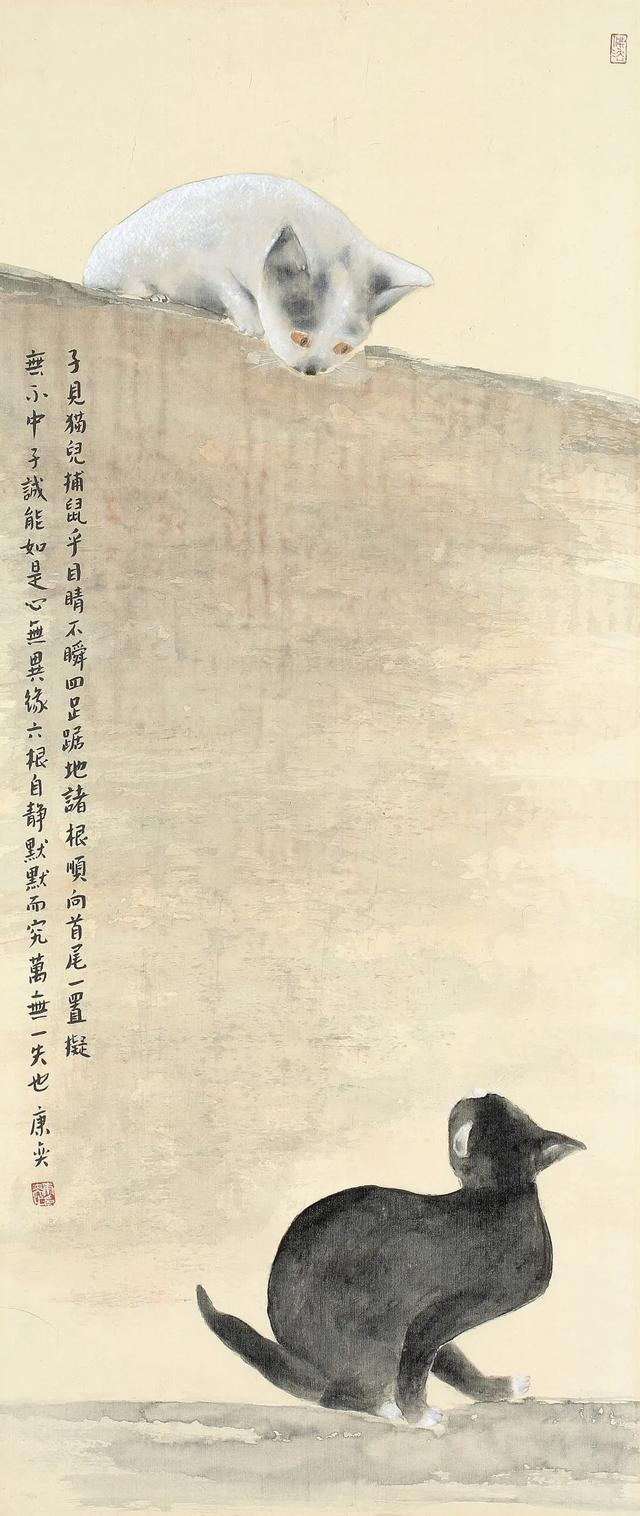 子見猫兒捕鼠乎目睛不瞬四足踞地諸根順向首尾一置擬
無不中子誠能如是心無異緣六根自静默默而究萬無一失也 康奕